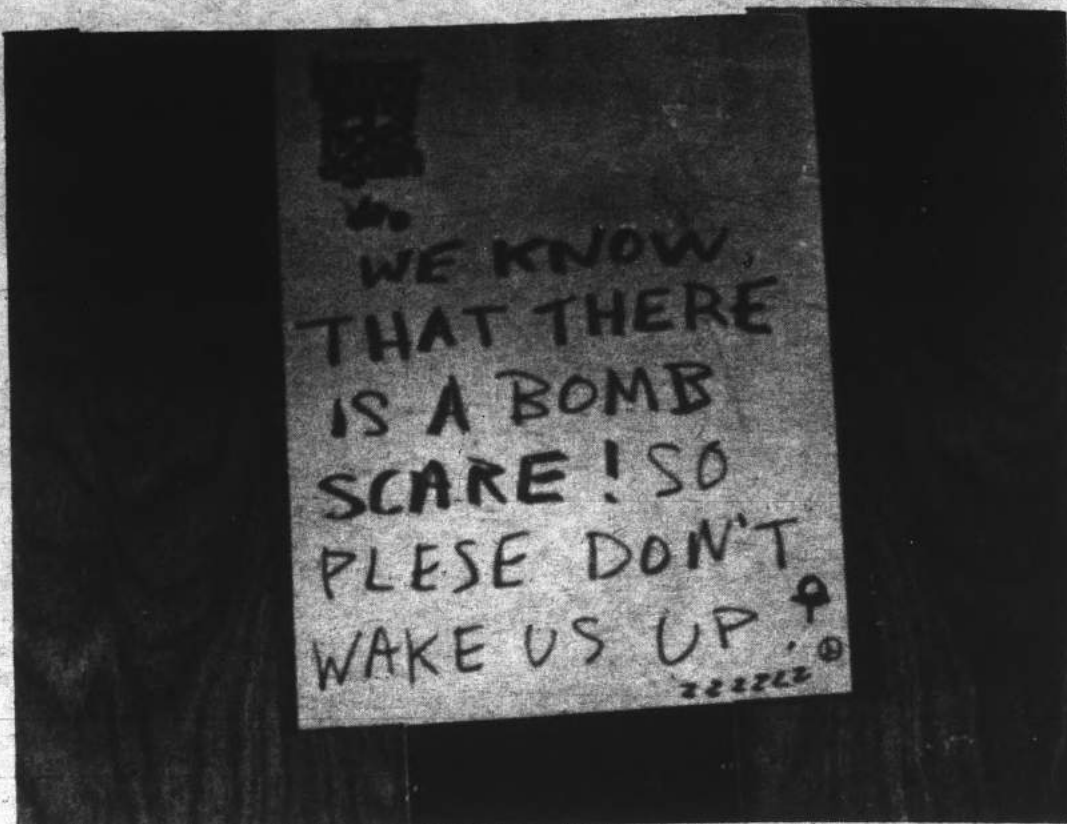 WE KNOW,
THAT THERE
IS A BOMB
SCARE! SO
PLESE DON'T
WAKE US UP!
zzzzzz